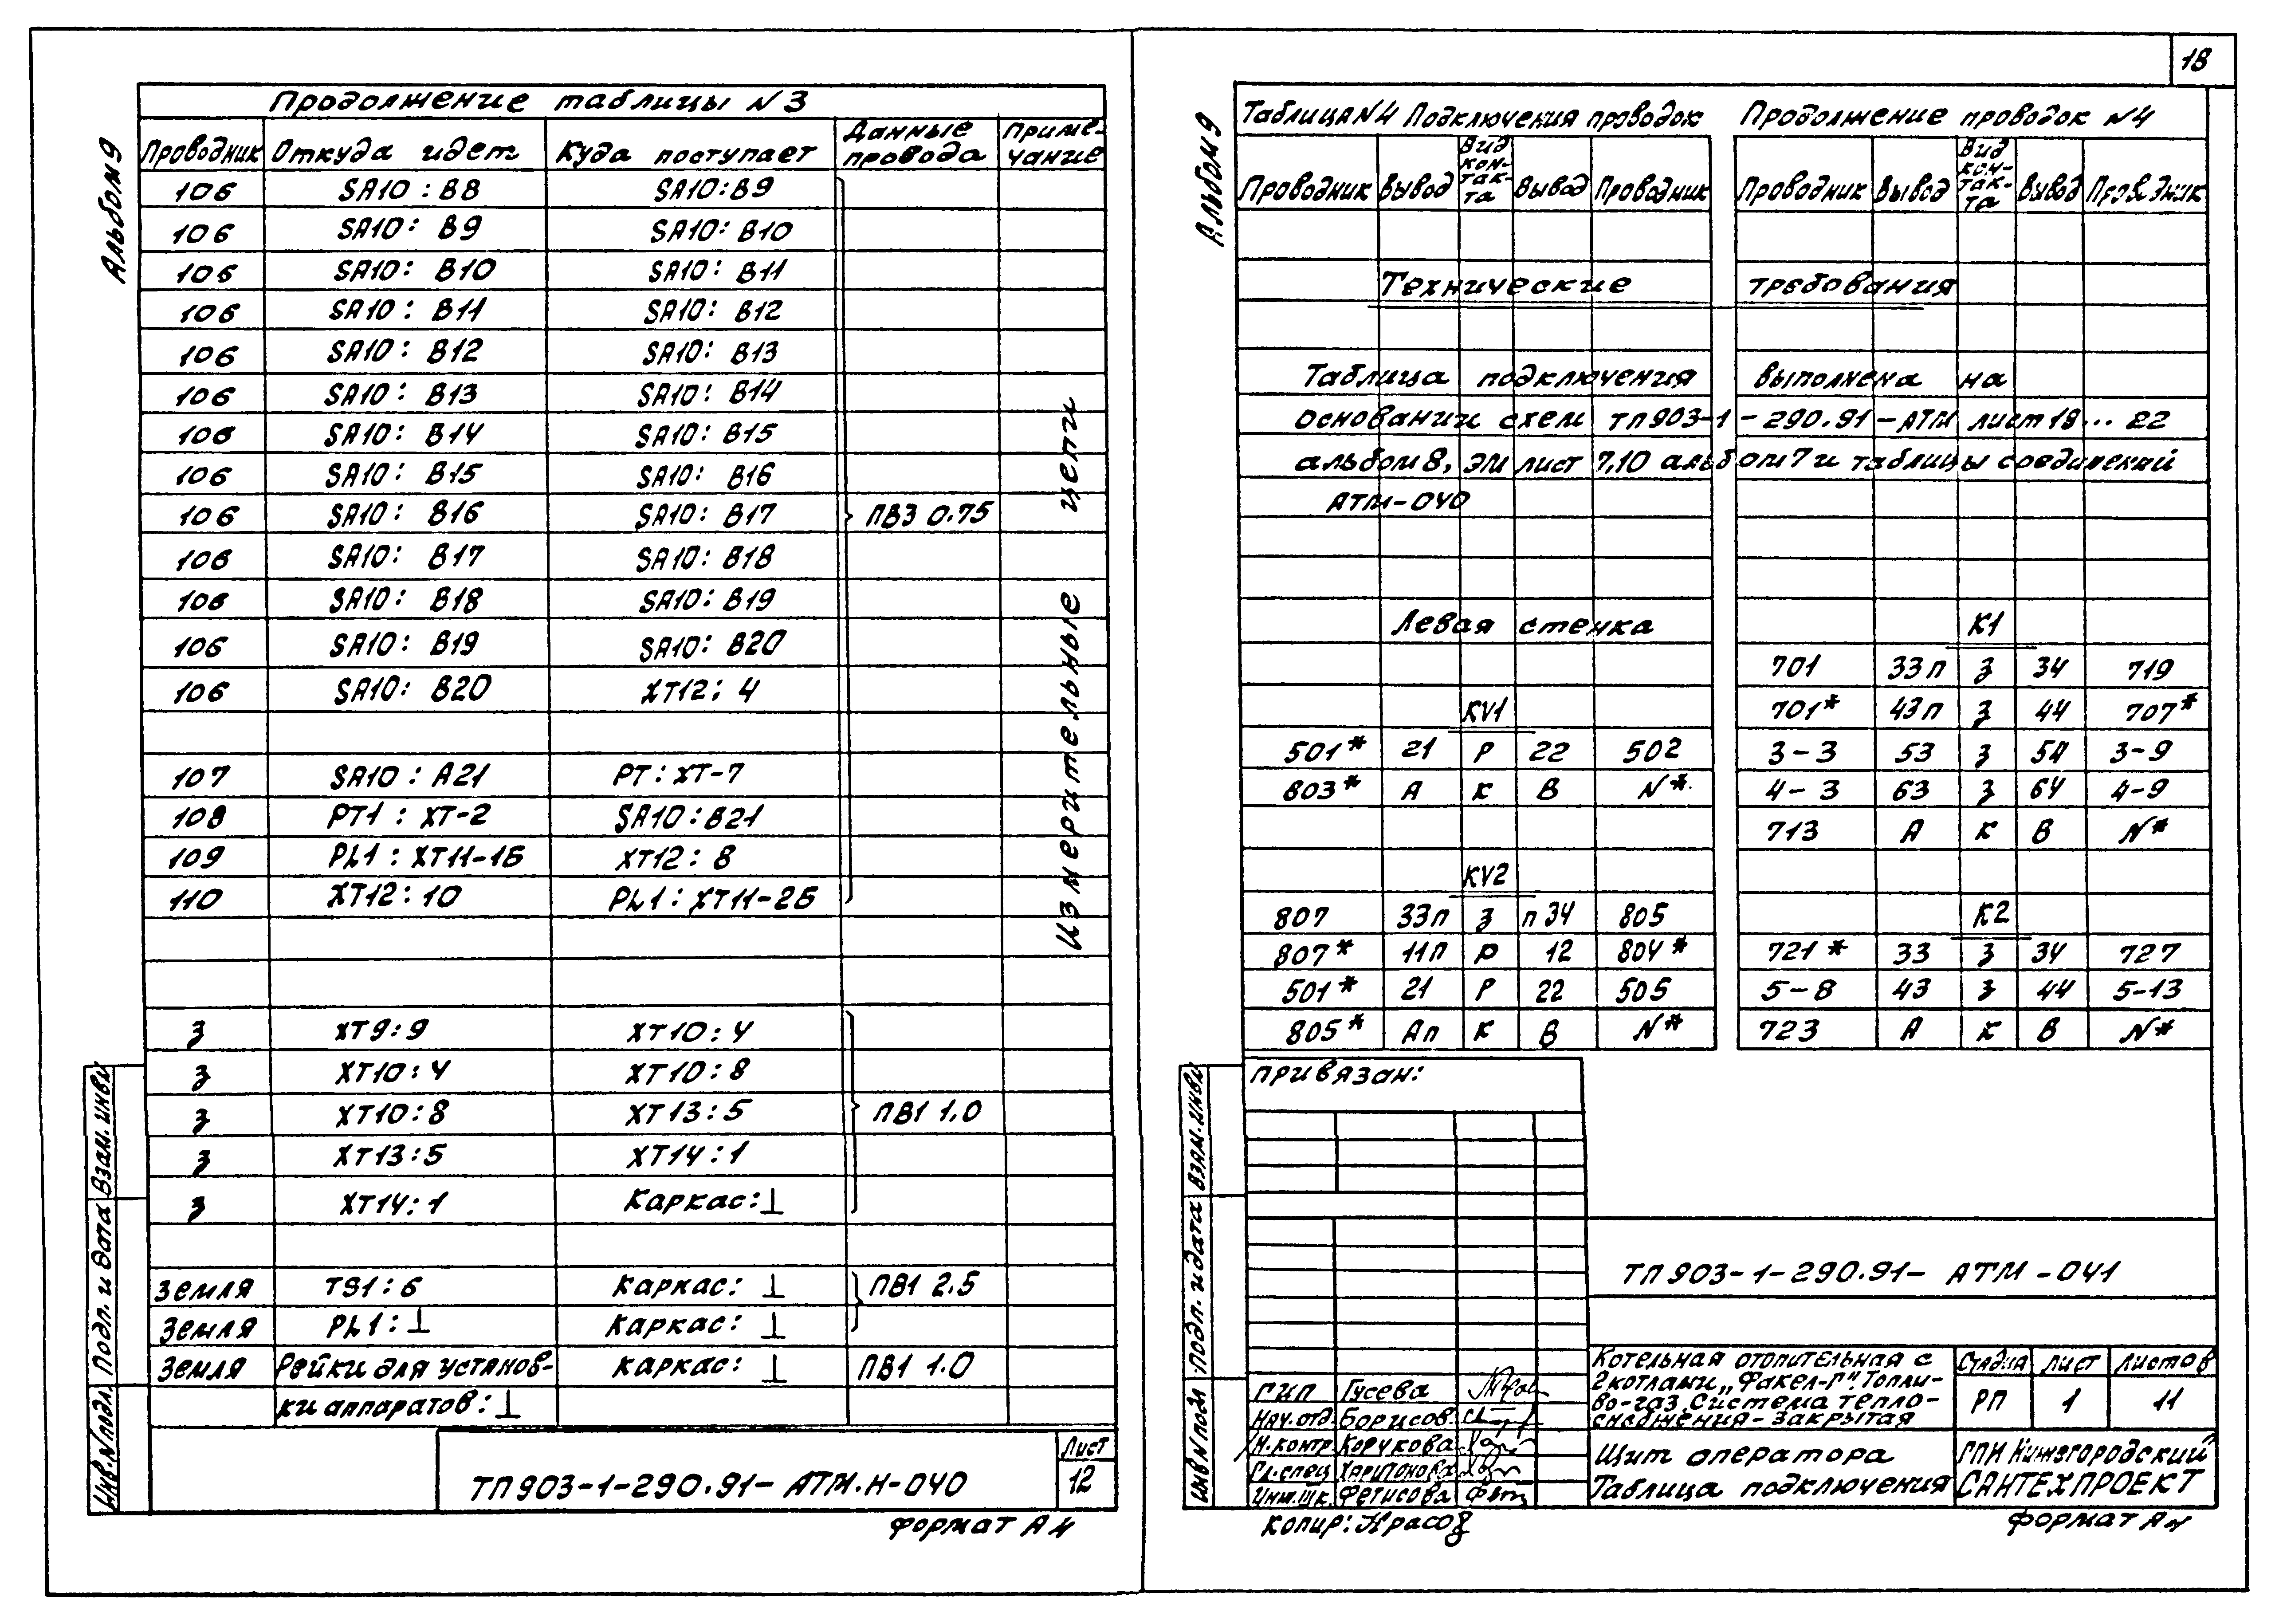 18
Альбом 9
Продолжение таблицы N3
Проводник Откуда идет Куда поступает Данные провода Примечание
106 SA10: B8 SA10: B9
106 SA10: B9 SA10: B10
106 SA10: B10 SA10: B11
106 SA10: B11 SA10: B12
106 SA10: B12 SA10: B13
106 SA10: B13 SA10: B14
106 SA10: B14 SA10: B15
106 SA10: B15 SA10: B16
106 SA10: B16 SA10: B17 ПВ3 0.75
106 SA10: B17 SA10: B18
106 SA10: B18 SA10: B19
106 SA10: B19 SA10: B20
106 SA10: B20 XT12: 4
107 SA10: A21 PT: XT-7
108 PT1: XT-2 SA10: B21
109 PL1: XT11-1Б XT12: 8
110 XT12: 10 PL1: XT11-2Б
Измерительные цепи
З XT9: 9 XT10: 4
З XT10: 4 XT10: 8
З XT10: 8 XT13: 5 ПВ1 1.0
З XT13: 5 XT14: 1
З XT14: 1 Каркас: ⊥
Земля TS1: 6 Каркас: ⊥ ПВ1 2.5
Земля PL1: ⊥ Каркас: ⊥
Земля Рейки для установ- каркас: ⊥ ПВ1 1.0
ки аппаратов: ⊥
Инв.N подл. Подл. и дата Взам. инв N
ТП903-1-290.91- АТМ.Н-040
Лист
12
Формат А4
Альбом 9
Таблица N4 Подключения проводок
Проводник Вывод Вид контакта Вывод Проводник
Продолжение проводок N4
Проводник Вывод Вид контакта Вывод Проводник
Технические требования
Таблица подключения выполнена на
основании схем ТП903-1-290.91-АТМ лист 18... 22
альбом 8, ЭМ лист 7,10 альбом 7 и таблицы соединений
АТМ-040
Левая стенка
KV1
501* 21 Р 22 502
803* А К В N*
KV2
807 33п З п34 805
807* 11п Р 12 804*
501* 21 Р 22 505
805* Ап К В N*
К1
701 33п З 34 719
701* 43п З 44 707*
3-3 53 З 54 3-9
4-3 63 З 64 4-9
713 А К В N*
К2
721* 33 З 34 727
5-8 43 З 44 5-13
723 А К В N*
Привязан:
Инв N подл Подл. и дата Взам. инв N
ТП903-1-290.91- АТМ-041
ГИП Гусева
Нач. отд. Борисов
Н.контр. Корукова
Гл.спец Харитонова
Инж.IIк. Фетисова
Котельная отопительная с
2 котлами „Факел-Г". Топли-
во-газ. Система тепло-
снабжения - закрытая
Стадия Лист Листов
РП 1 11
Щит оператора
Таблица подключения
ГПИ Нижегородский
САНТЕХПРОЕКТ
Формат А4